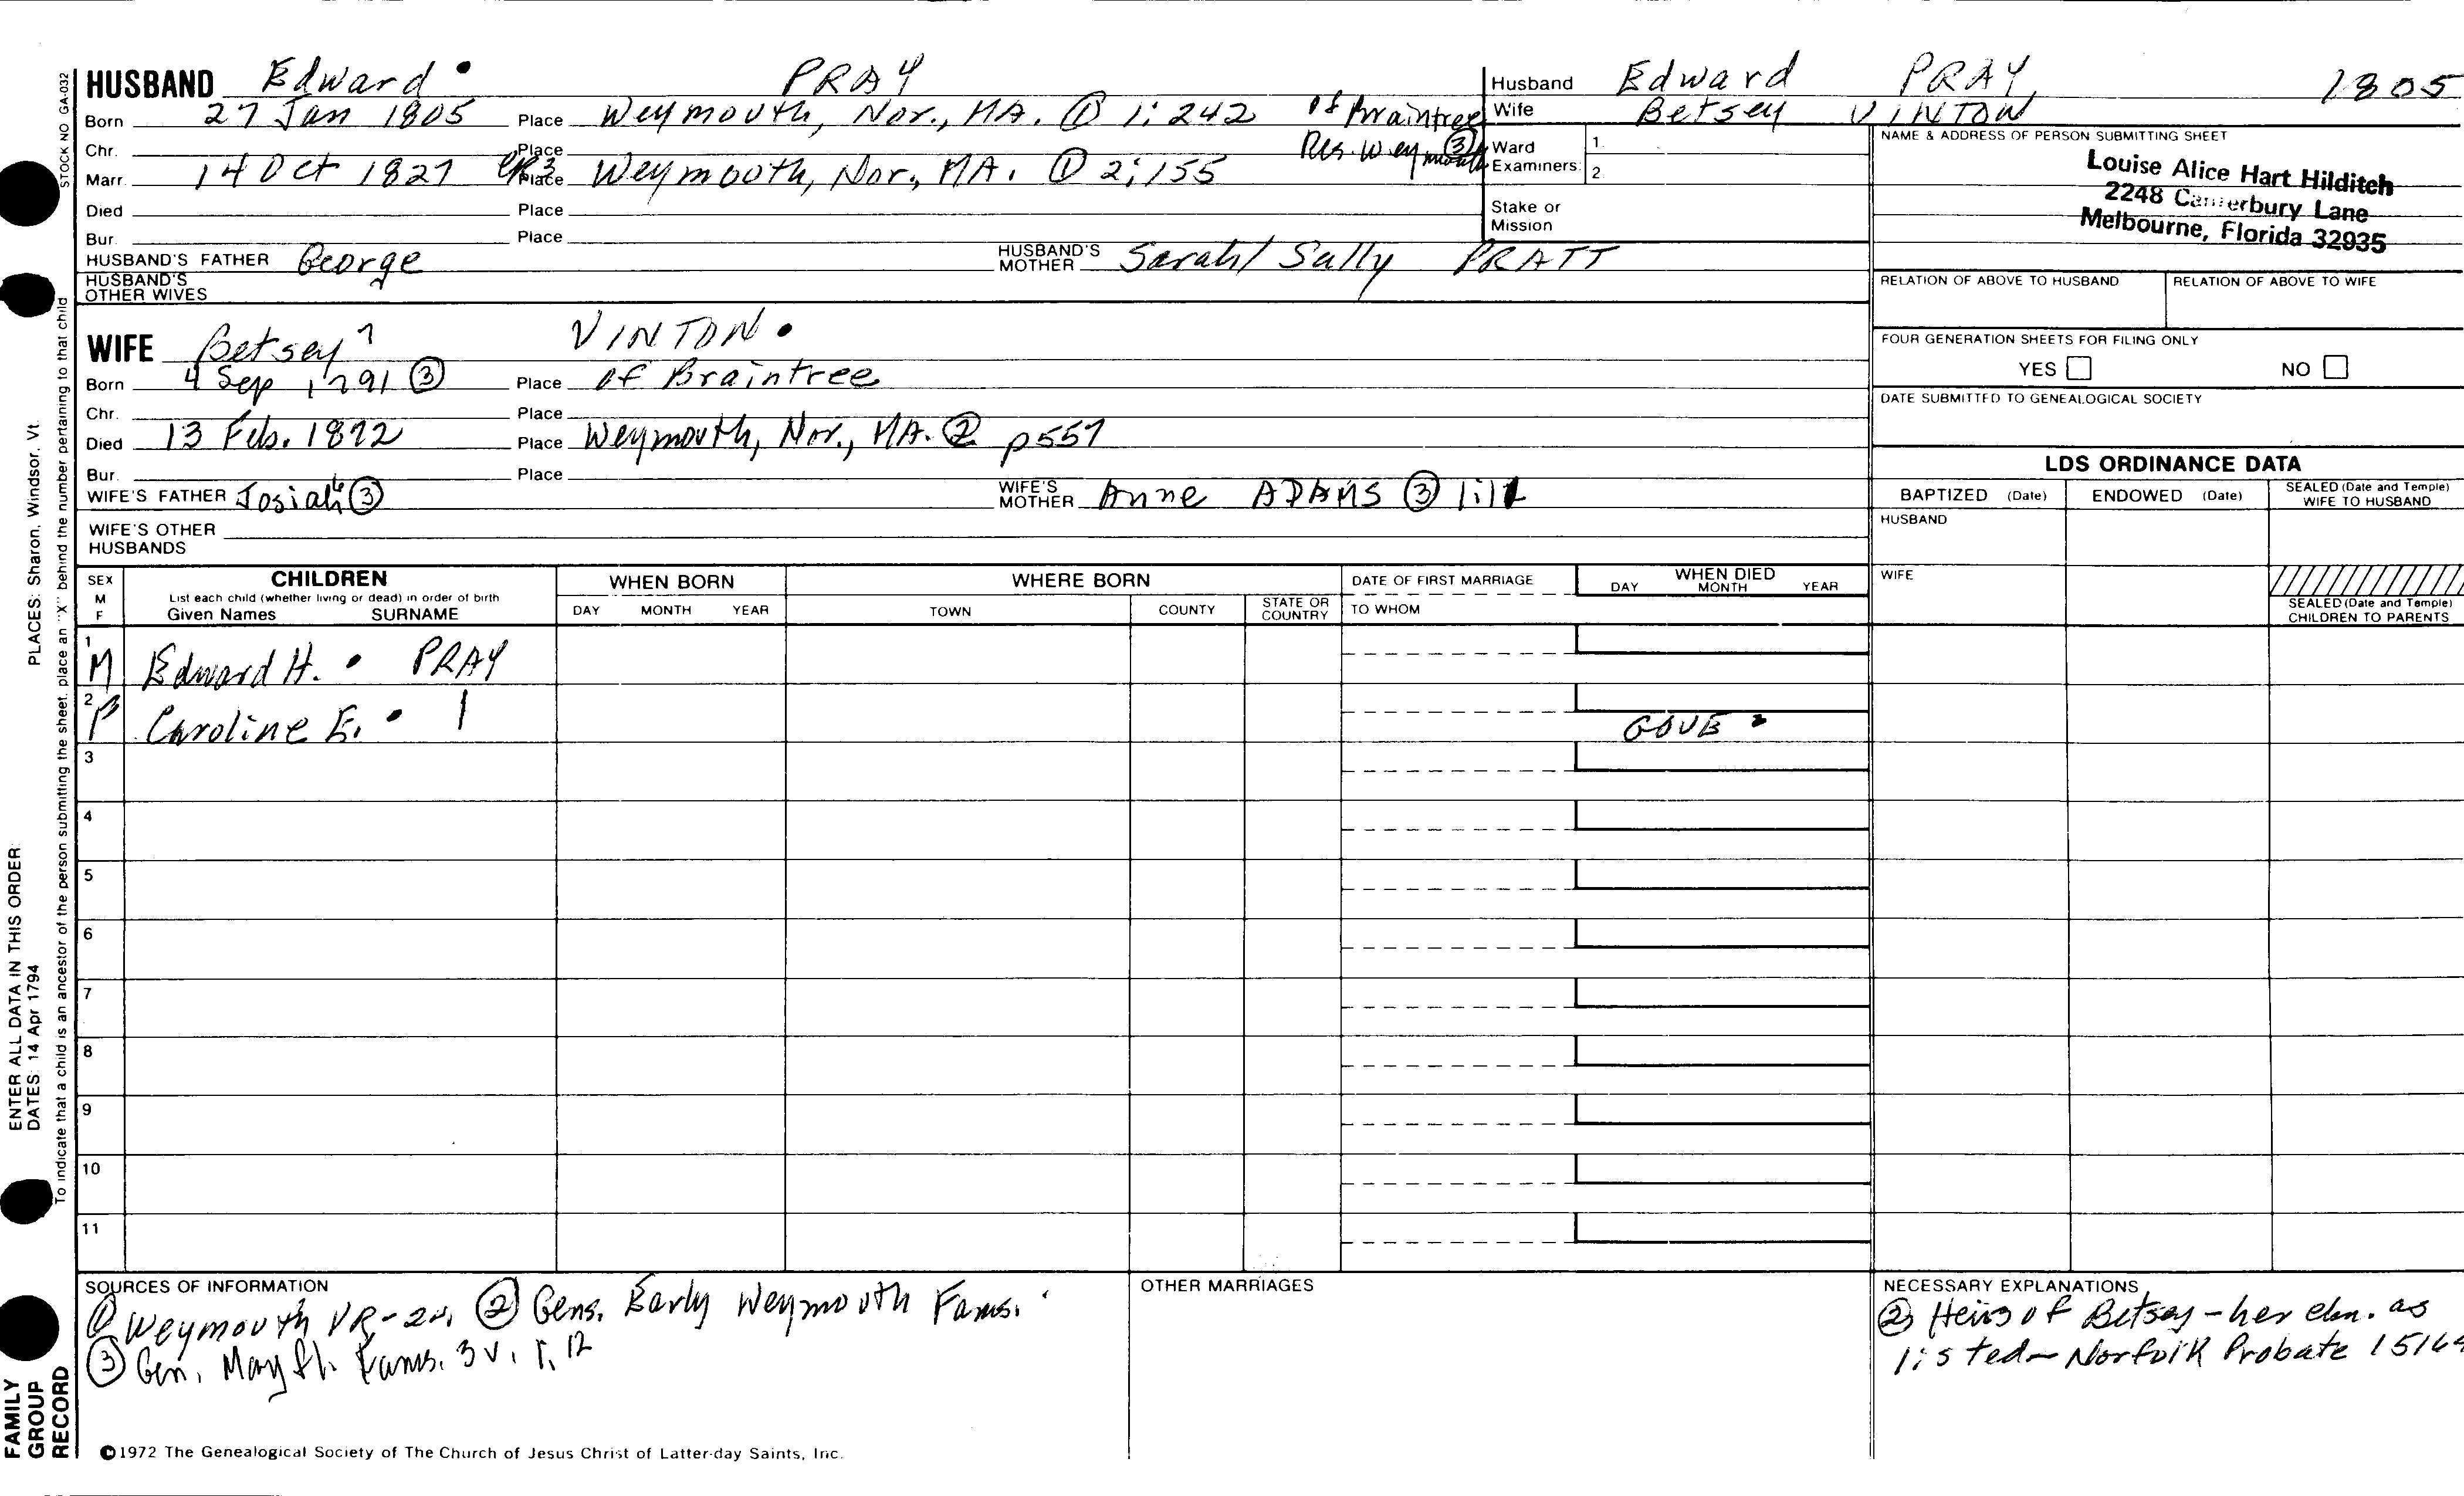 HUSBAND Edward PRAY
Born 27 Jan 1805 Place Weymouth, Nor., MA. ① 1:242 of Braintree
Chr. Place Res. Weymouth ③
Marr. 14 Oct 1827 CR3 Place Weymouth, Nor., MA. ① 2:155
Died Place
Bur. Place
HUSBAND'S FATHER George HUSBAND'S MOTHER Sarah/Sally PRATT
HUSBAND'S OTHER WIVES
WIFE Betsey 7 VINTON
Born 4 Sep 1791 ③ Place of Braintree
Chr. Place
Died 13 Feb. 1872 Place Weymouth, Nor., MA. ② p557
Bur. Place
WIFE'S FATHER Josiah 6 ③ WIFE'S MOTHER Anne ADAMS ③
WIFE'S OTHER HUSBANDS
Husband Edward PRAY, 1805
Wife Betsey VINTON
Ward Examiners: 1.
2.
Stake or Mission
NAME & ADDRESS OF PERSON SUBMITTING SHEET
Louise Alice Hart Hilditch
2248 Canterbury Lane
Melbourne, Florida 32935
RELATION OF ABOVE TO HUSBAND RELATION OF ABOVE TO WIFE
FOUR GENERATION SHEETS FOR FILING ONLY
YES NO
DATE SUBMITTED TO GENEALOGICAL SOCIETY
LDS ORDINANCE DATA
BAPTIZED (Date) ENDOWED (Date) SEALED (Date and Temple) WIFE TO HUSBAND
HUSBAND
WIFE
SEALED (Date and Temple)
CHILDREN TO PARENTS
SEX M F CHILDREN WHEN BORN WHERE BORN DATE OF FIRST MARRIAGE WHEN DIED
List each child (whether living or dead) in order of birth
Given Names SURNAME DAY MONTH YEAR TOWN COUNTY STATE OR COUNTRY TO WHOM DAY MONTH YEAR
1 M Edward H. PRAY
2 F Caroline E. GOVE
3
4
5
6
7
8
9
10
11
SOURCES OF INFORMATION
① Weymouth VR-2v, ② Gens. Early Weymouth Fams.
③ Gen. Mayfl. Fams. 3v.
OTHER MARRIAGES
NECESSARY EXPLANATIONS
② Heirs of Betsey - her chn. as
listed - Norfolk Probate
©1972 The Genealogical Society of The Church of Jesus Christ of Latter-day Saints, Inc.
STOCK NO GA-032
To indicate that a child is an ancestor of the person submitting the sheet, place an "X" behind the number pertaining to that child
PLACES: Sharon, Windsor, Vt.
ENTER ALL DATA IN THIS ORDER:
DATES: 14 Apr 1794
FAMILY
GROUP
RECORD